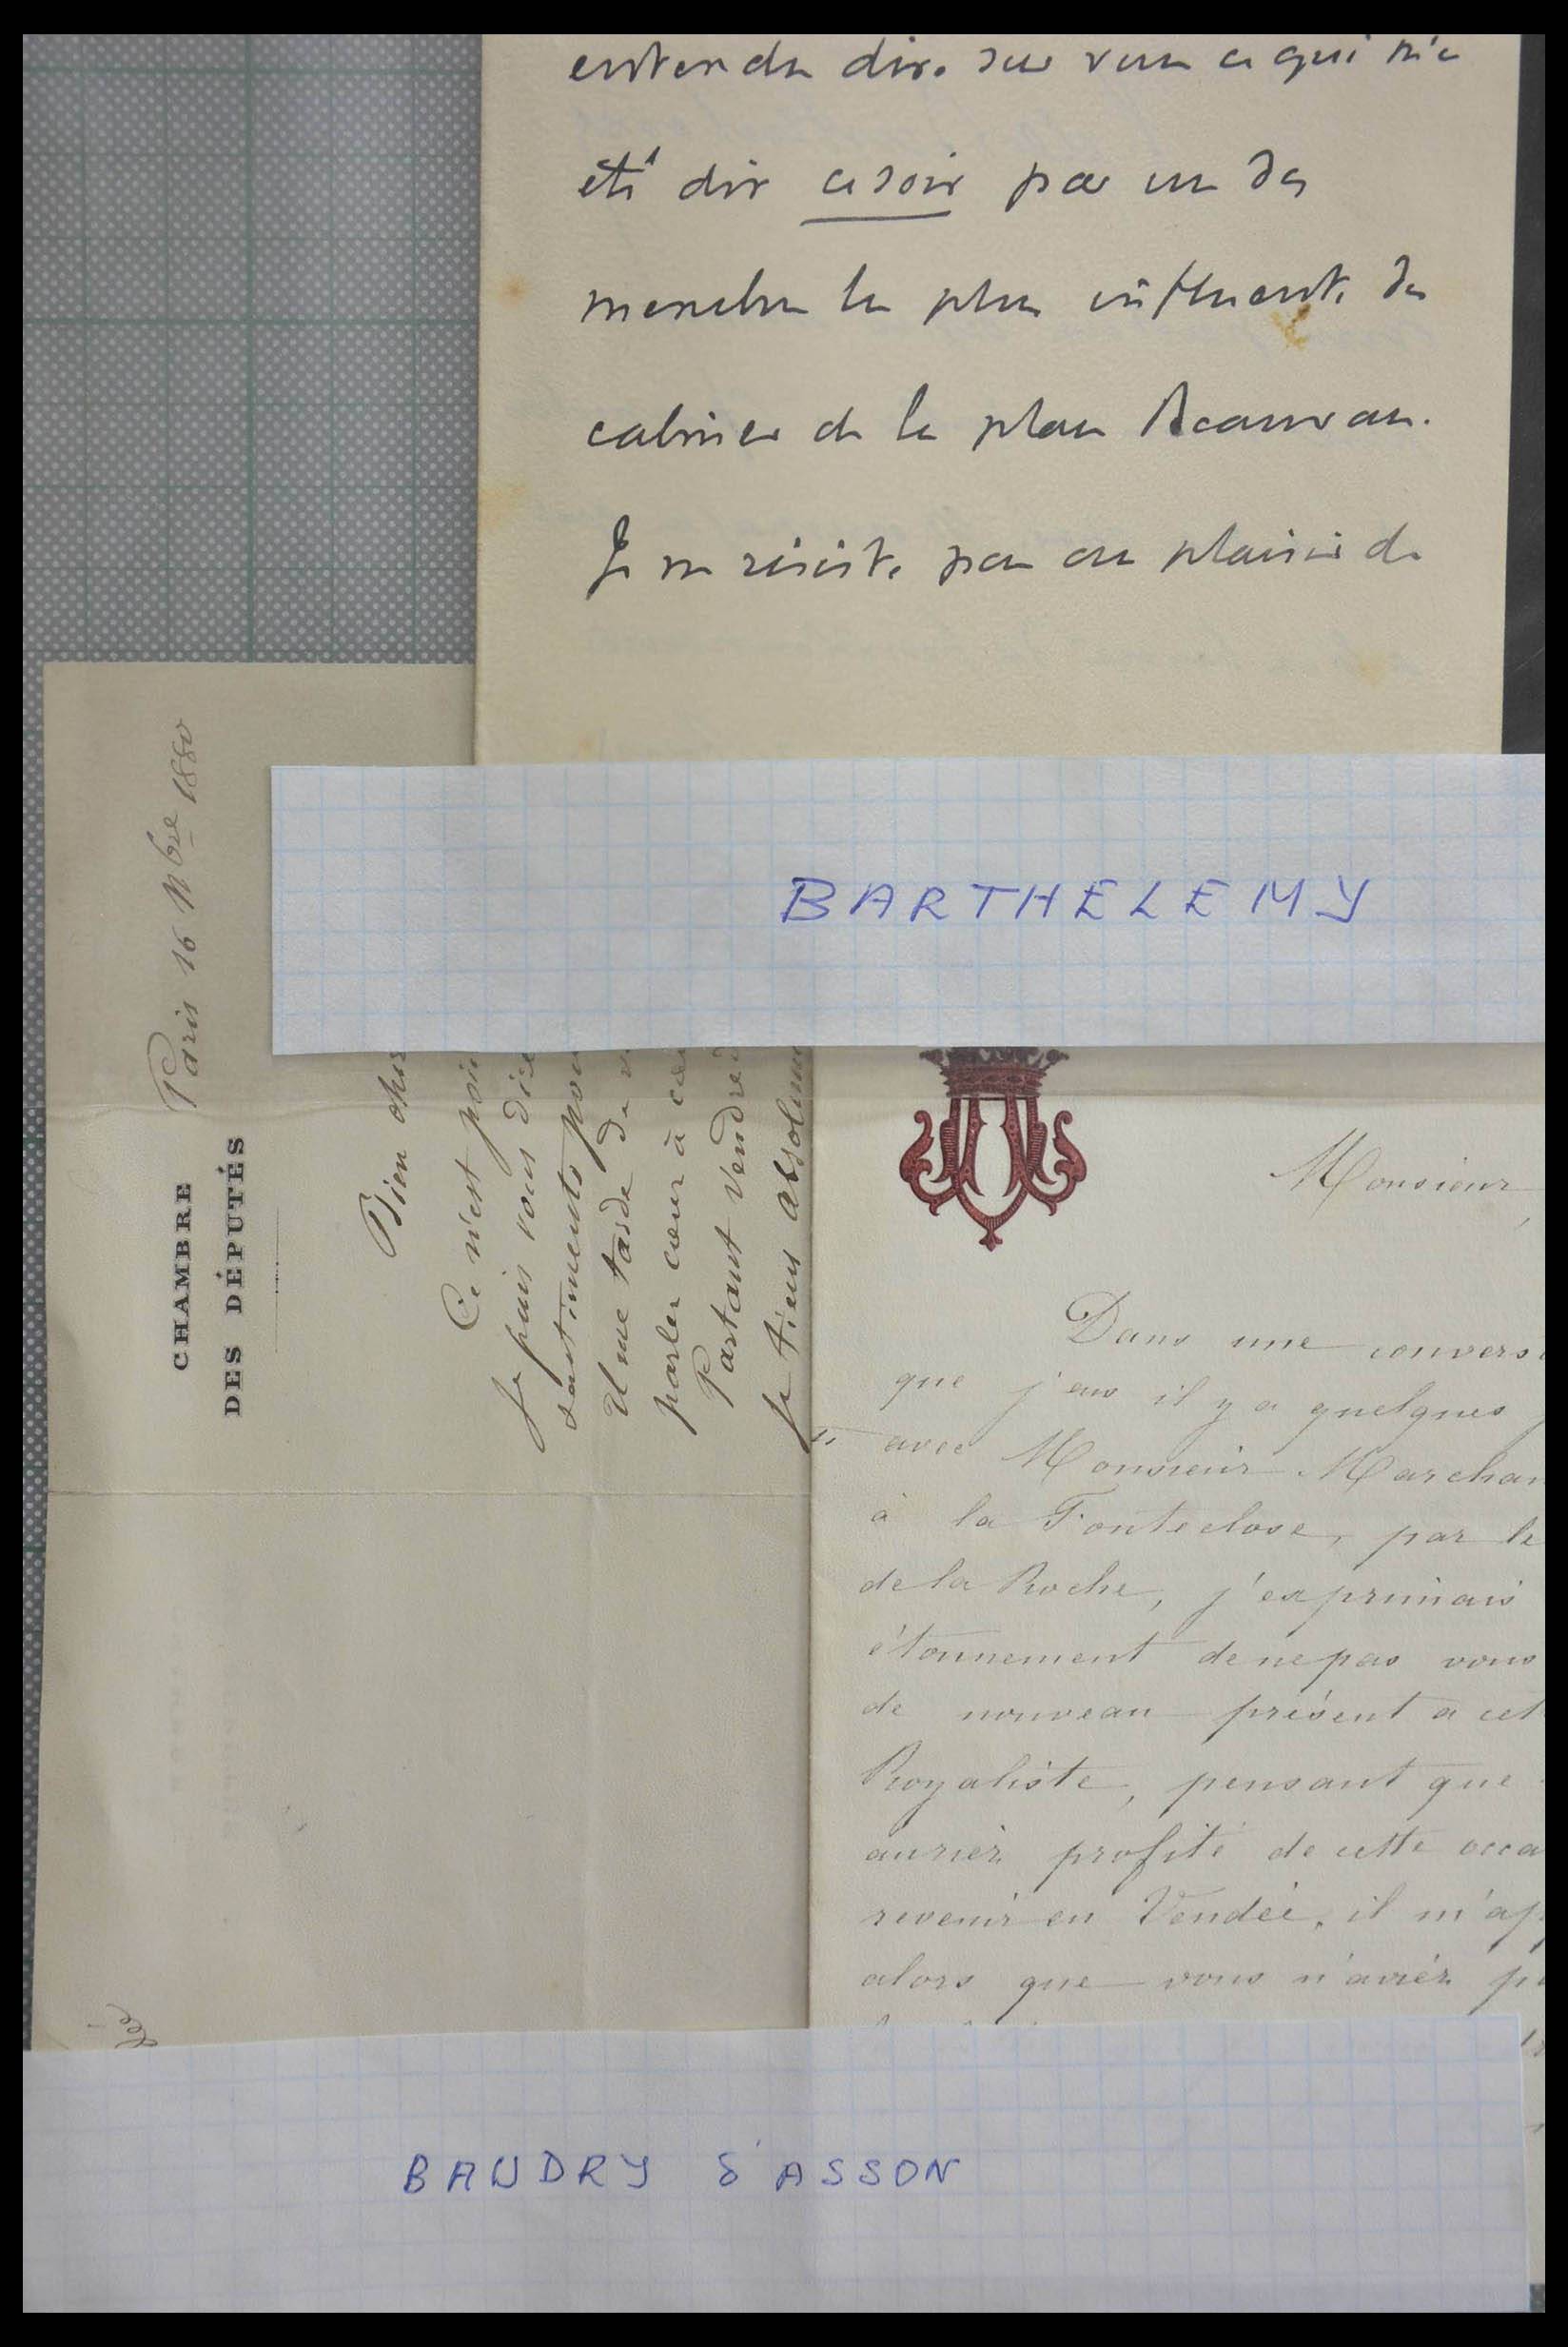 entendu dire sur vous ce qui m'a
été dit ce soir par un des
membres les plus influents du
cabinet de la place Beauvau.
Je ne résiste pas au plaisir de
BARTHELEMY
CHAMBRE
DES DÉPUTÉS
Paris 16 Nbre 1880
Bien cher
Ce n'est
Je puis vous dire
sentiments
Il me tarde de
parler cœur à
Partant
Je tiens
Monsieur,
Dans une convers
que j'eus il y a quelques
avec Monsieur Marchan
à la Fonteclose, par le
de la Roche, j'exprimais
étonnement de ne pas vous
de nouveau présent a cet
Royaliste, pensant que
auriez profité de cette occa
revenir en Vendée, il m'ap
alors que vous n'aviez p
BAUDRY d'ASSON